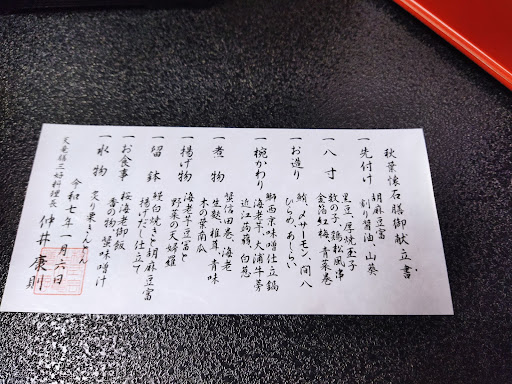 秋葉懐石膳御献立書
一 先付け
胡麻豆富
割り醤油、山葵
一 八寸
黒豆、厚焼玉子
数の子、鶏松風串
金箔紅梅、青菜巻
一 お造り
鮪、〆サーモン、間八
ひらめ、あしらい
一 椀かわり
鰤西京味噌仕立鍋
海老芋、大浦牛蒡
近江蒟蒻、白葱
一 煮物
蟹信田巻、海老
生麩、椎茸、青味
木の葉南瓜
一 揚げ物
海老芋豆富と
野菜の天婦羅
一 留鉢
鰻白焼きと胡麻豆富
揚げだし仕立て
一 お食事
桜海老御飯
香の物 蟹味噌汁
一 水物
炙り栗きんとん
令和七年一月六日
天竜膳三好料理長 仲井康則